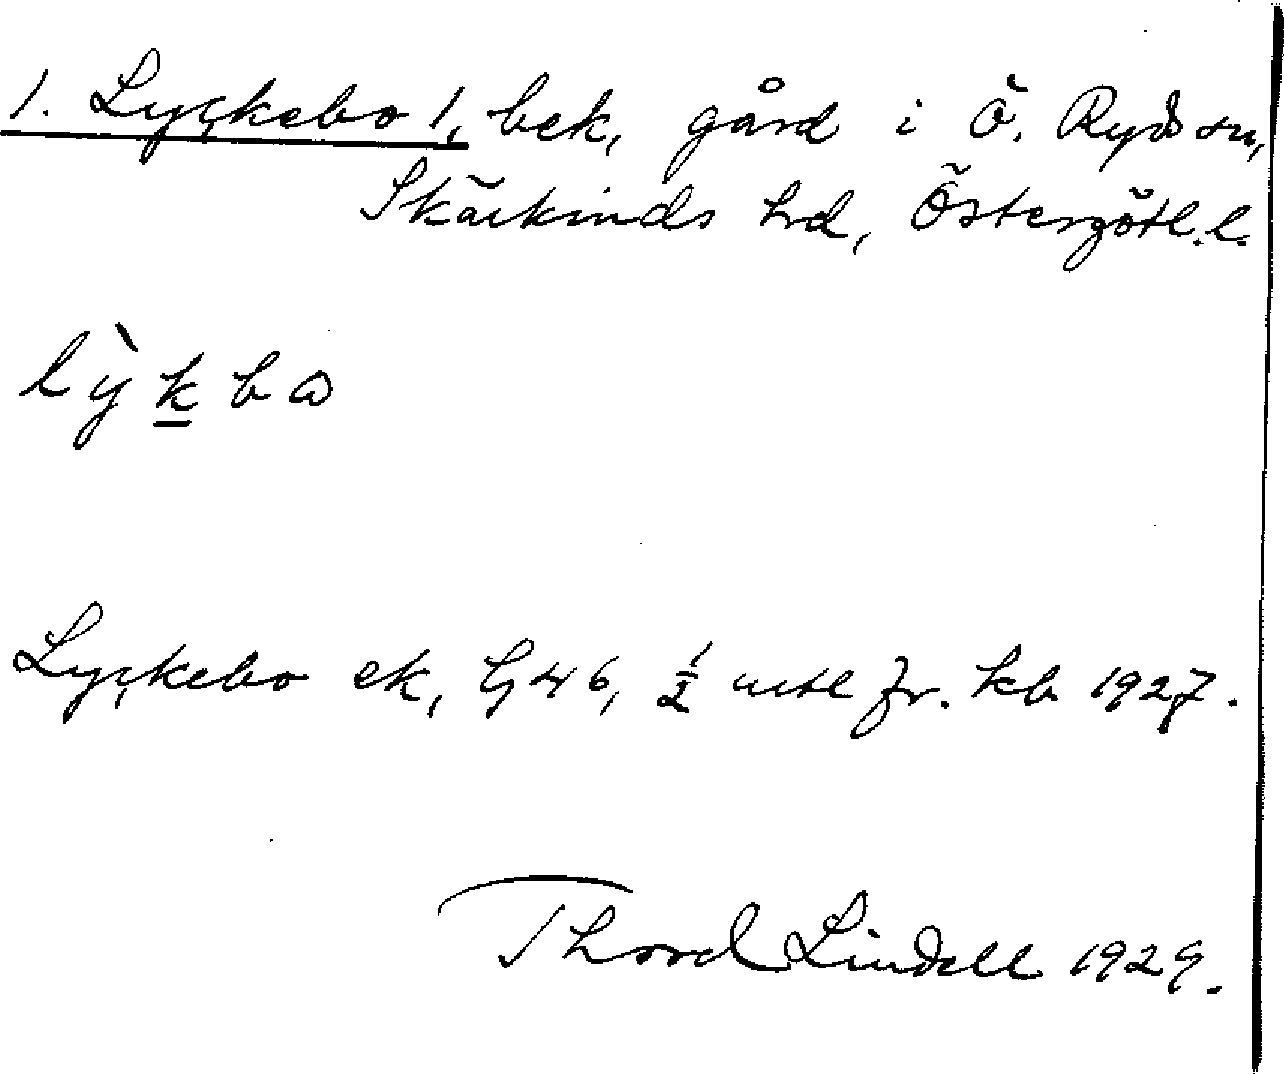 1. Lyckebo 1, bek, gård i Ö. Ryds sn,
Skärkinds hd, Östergötl. l.
lỳkbω
Lyckebo ek, G46, ½ mtl fr. kb 1927.
Thord Lindell 1929.